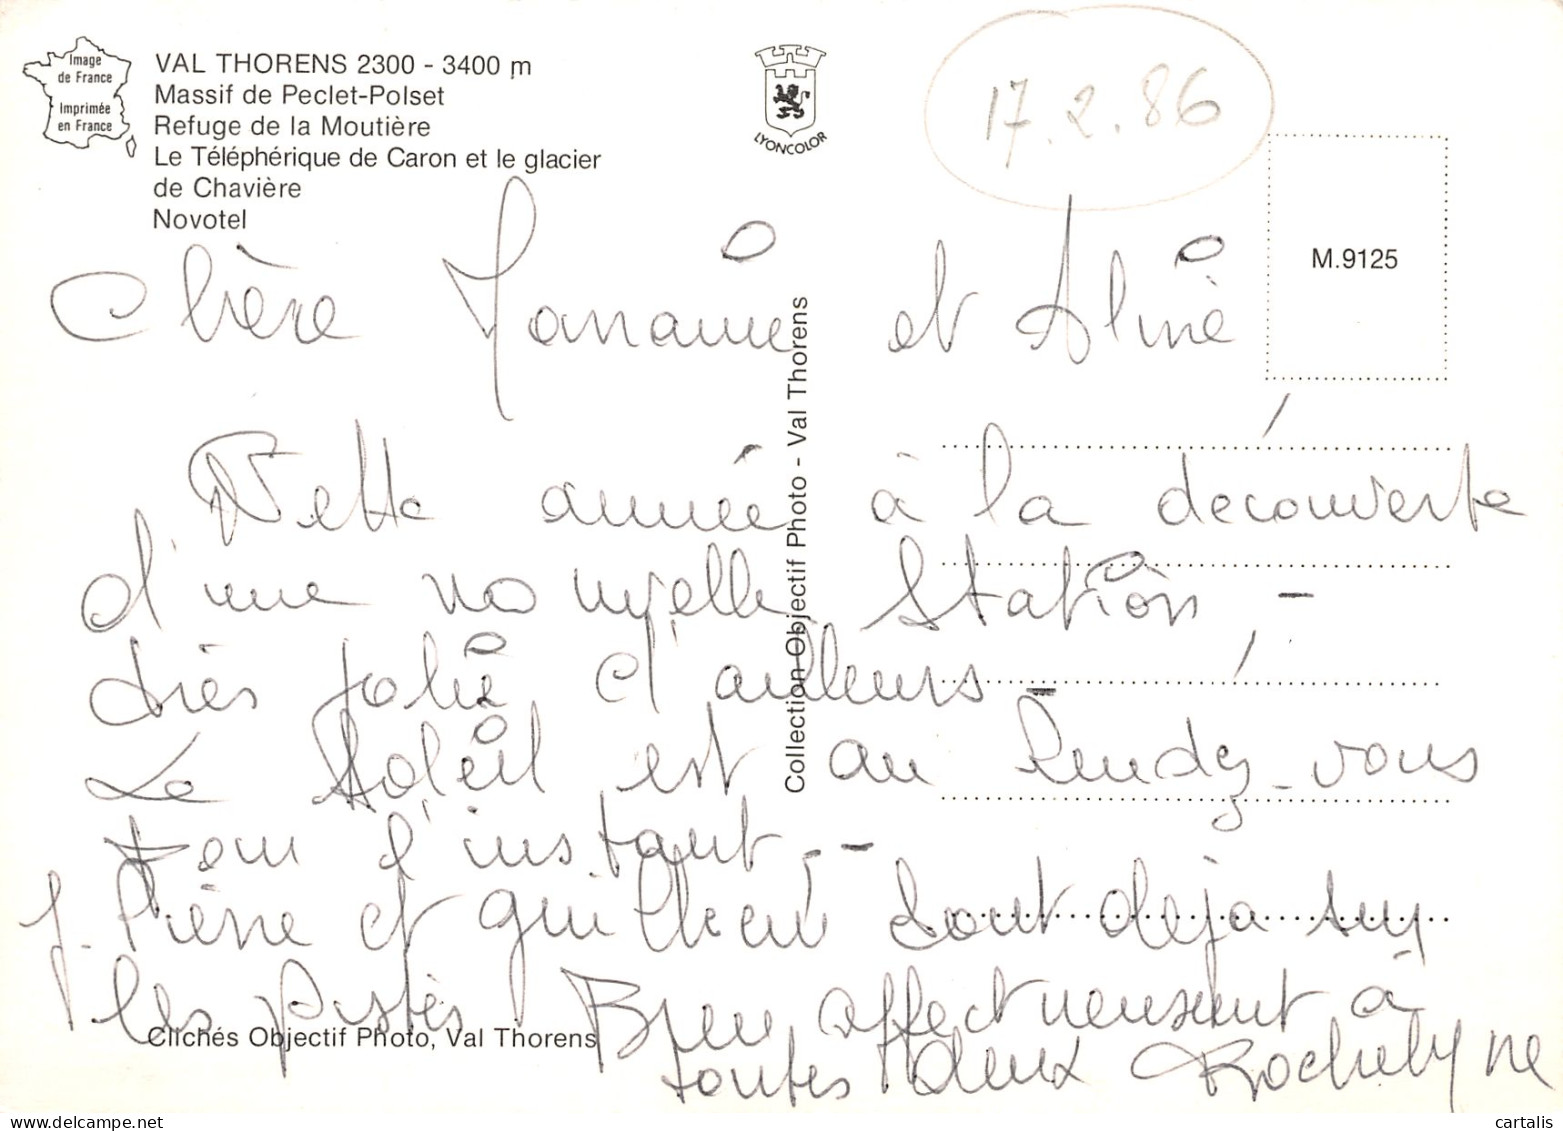 Image
de France
Imprimée
en France
VAL THORENS 2300 - 3400 m
Massif de Peclet-Polset
Refuge de la Moutière
Le Téléphérique de Caron et le glacier
de Chavière
Novotel
LYONCOLOR
17.2.86
M.9125
Chère et Aline
Cette année à la decouverte
d'une nouvelle station -
très jolie d'ailleurs -
Le Soleil est au Rendez-vous
pour l'instant.-
J. Pierre et guilhem sont deja sur
les pistes Bien affectueusement à
toutes deux Rochelyne
Collection Objectif Photo - Val Thorens
Clichés Objectif Photo, Val Thorens
cartalis